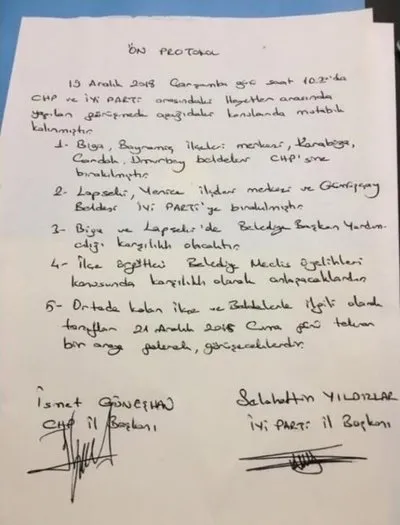 ÖN PROTOKOL
19 Aralık 2018 Çarşamba günü saat 10.20'da
CHP ve İYİ PARTİ arasındaki Heyetler arasında
yapılan görüşmede aşağıdaki konularda mutabık
kalınmıştır.
1- Biga, Bayramiç ilçeleri merkezi, Karabiga,
Çardak, Umurbey beldeleri CHP'sine
bırakılmıştır.
2- Lapseki, Yenice ilçeleri merkezi ve Gümüşçay
Beldesi İYİ PARTİ'ye bırakılmıştır.
3- Biga ve Lapseki'de Belediye Başkan Yardım-
cılığı karşılıklı olacaktır.
4- İlçe Örgütleri Belediye Meclis üyelikleri
konusunda karşılıklı olarak anlaşacaklardır.
5- Ortada kalan ilçe ve Beldelerle ilgili olarak
taraflar 21 Aralık 2018 Cuma günü tekrar
bir araya gelerek, görüşeceklerdir.
İsmet GÜNEŞHAN
CHP il Başkanı
Selahattin YILDIZLAR
İYİ PARTİ il Başkanı